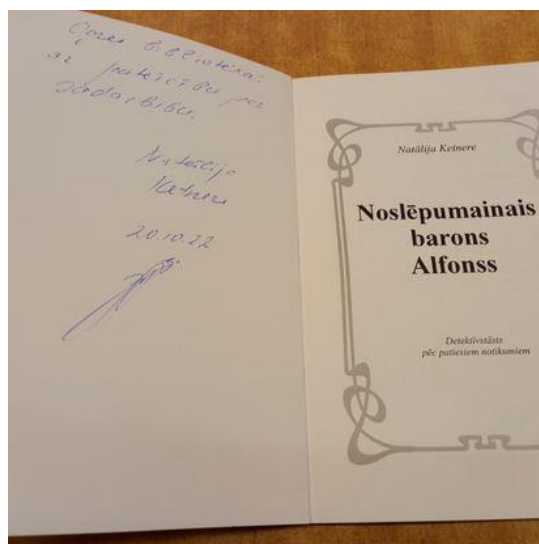 Ogres bibliotēkai
ar pateicību par
sadarbību.
Natālija
Ketnere
20.10.22
Natālija Ketnere
Noslēpumainais
barons
Alfonss
Detektīvstāsts
pēc patiesiem notikumiem